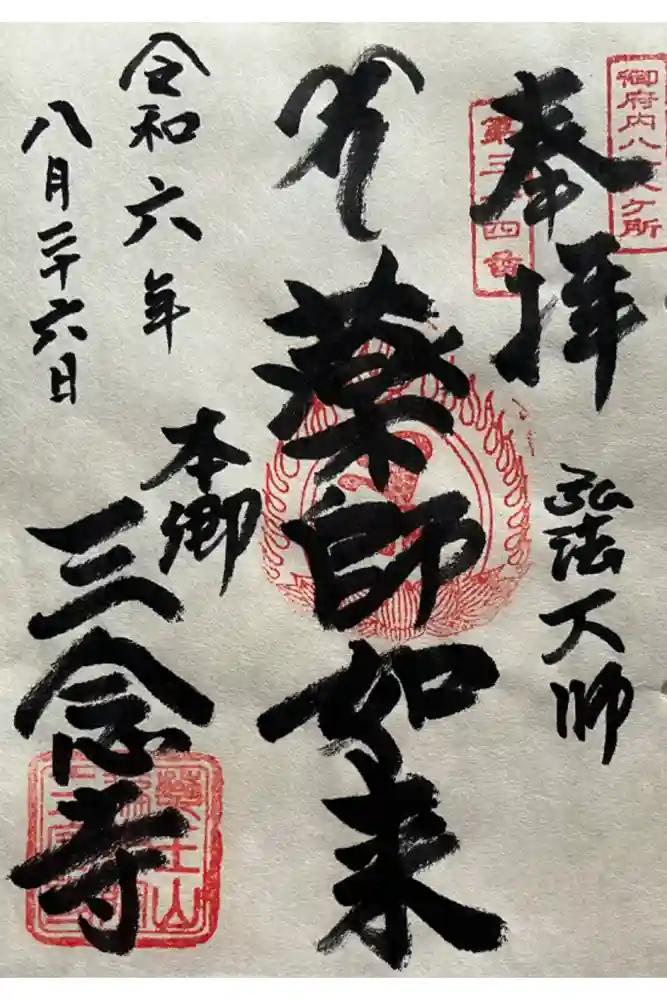 御府内八十八ケ所
第三十四番
奉拝
弘法大師
薬師如来
本郷
三念寺
令和六年
八月二十六日